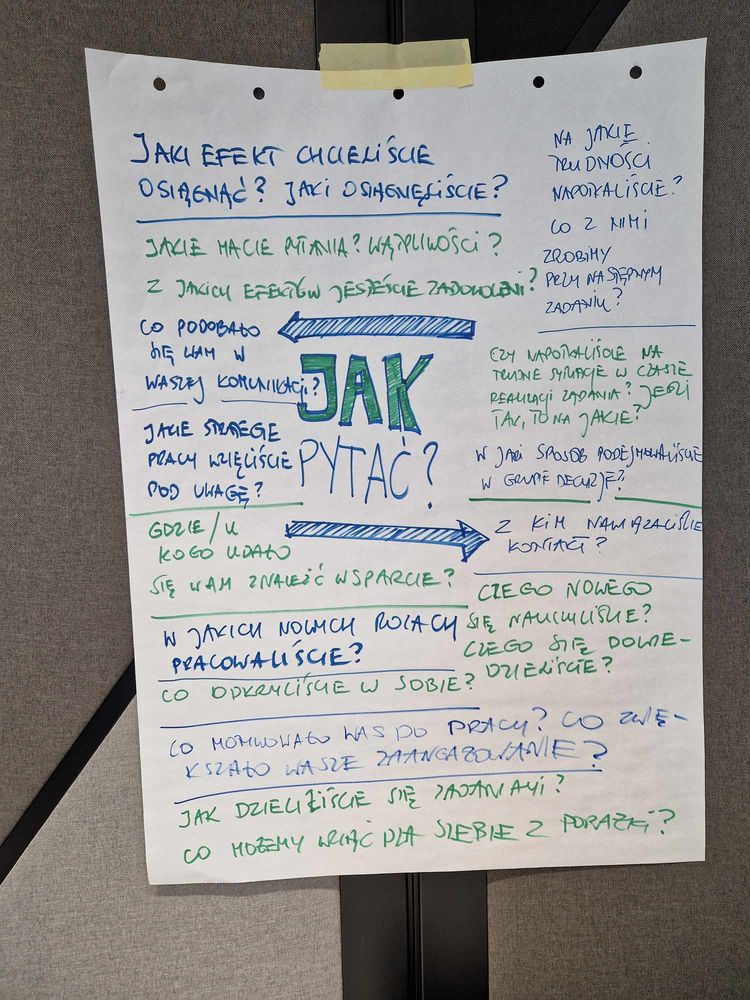 JAKI EFEKT CHCIELIŚCIE
OSIĄGNĄĆ? JAKI OSIĄGNĘLIŚCIE?
JAKIE MACIE PYTANIA? WĄTPLIWOŚCI?
Z JAKICH EFEKTÓW JESTEŚCIE ZADOWOLENI?
CO PODOBAŁO
SIĘ WAM W
WASZEJ KOMUNIKACJI?
JAKIE STRATEGIE
PRACY WZIĘLIŚCIE
POD UWAGĘ?
GDZIE/U
KOGO UDAŁO
SIĘ WAM ZNALEŹĆ WSPARCIE?
W JAKICH NOWYCH ROLACH
PRACOWALIŚCIE?
CO ODKRYLIŚCIE W SOBIE?
JAK
PYTAĆ?
NA JAKIE
TRUDNOŚCI
NAPOTKALIŚCIE?
CO Z NIMI
ZROBIMY
PRZY NASTĘPNYM
ZADANIU?
CZY NAPOTKALIŚCIE NA
TRUDNE SYTUACJE W CZASIE
REALIZACJI ZADANIA? JEŚLI
TAK, TO NA JAKIE?
W JAKI SPOSÓB PODEJMOWALIŚCIE
W GRUPIE DECYZJE?
Z KIM NAWIĄZALIŚCIE
KONTAKT?
CZEGO NOWEGO
SIĘ NAUCZYLIŚCIE?
CZEGO SIĘ DOWIE-
DZIELIŚCIE?
CO MOTYWOWAŁO WAS DO PRACY? CO ZWIĘ-
KSZAŁO WASZE ZAANGAŻOWANIE?
JAK DZIELILIŚCIE SIĘ ZADANIAMI?
CO MOŻEMY WZIĄĆ DLA SIEBIE Z PORAŻKI?